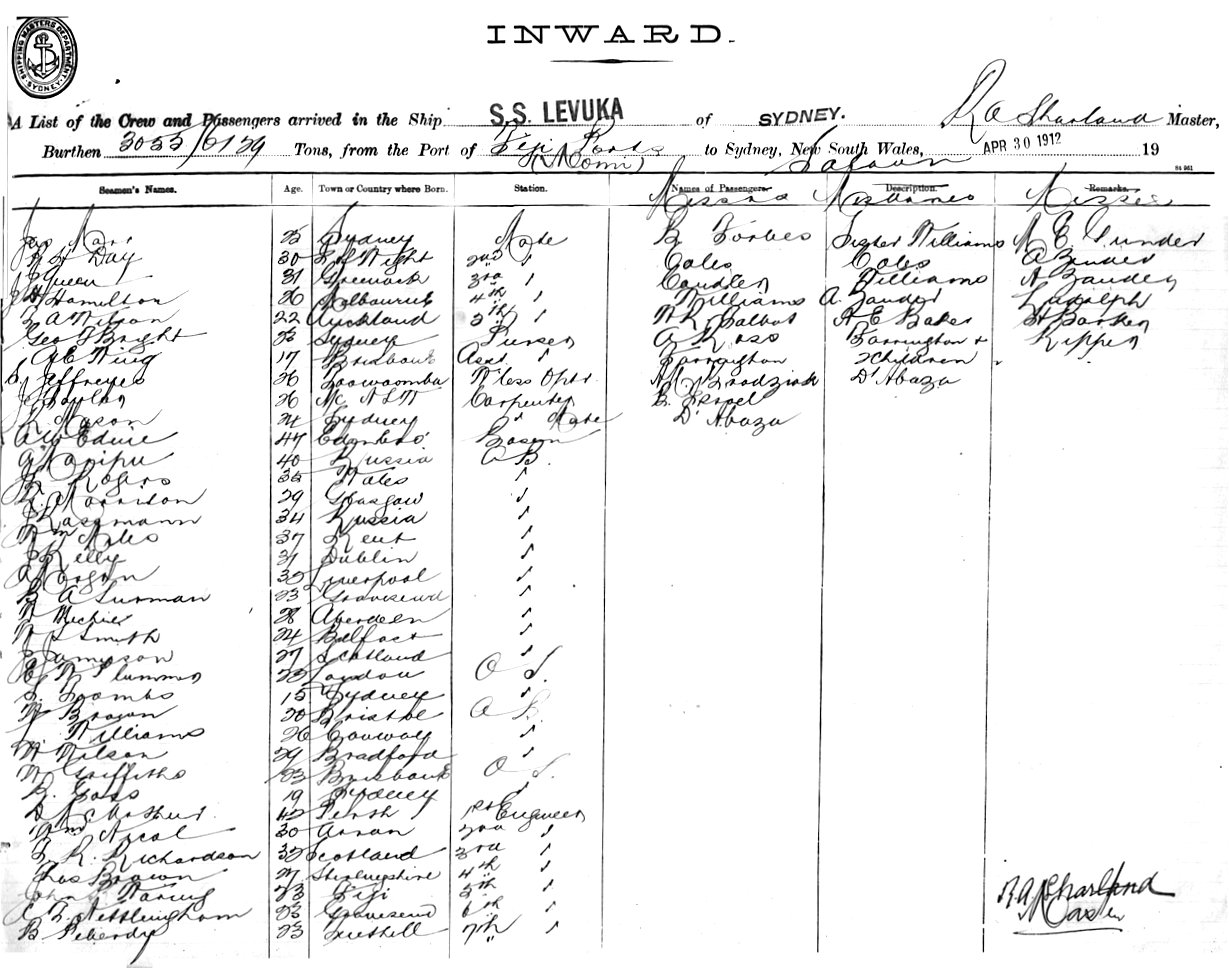 SHIPPING MASTERS DEPARTMENT SYDNEY
INWARD.
A List of the Crew and Passengers arrived in the Ship S.S. LEVUKA of SYDNEY. R A Sharland Master,
Burthen 3055/6129 Tons, from the Port of Fiji Ports to Sydney, New South Wales, APR 30 1912 19
(Momi) Saloon
84 961
Seamen's Names. Age. Town or Country where Born. Station. Names of Passengers. Description. Remarks.
Messrs Mesdames Misses
Jas Marr 25 Sydney Mate B Forbes Sister Williams M E Sunder
Day 30 I of Wight 2nd " Coles Coles
J Queen 31 Greenock 3rd " Caudler Williams
Hamilton 26 Melbourne 4th " Williams A. Zander Rudolph
Wilson 22 Auckland 5th " Talbot A E Baker Barker
Geo F Bright Sydney Purser A Ross Barrington & Ripper
A E King 17 Brisbane Asst " Barrington 2 Children
Jeffreyes 26 Toowoomba W'less Optr A M Brodziak D'Abaza
26 N S W Carpenter Israel
Mason 24 Sydney " Mate D'Abaza
A W Edine 47 Edinboro' Bosun
40 Russia A B
Rogers 35 Wales "
Morrison 29 Glasgow "
Rassmann 34 Russia "
Wm Niles 37 Kent "
J Kelly 31 Dublin "
A Morgan 35 Liverpool "
B A Surman 23 Gravesend "
Michie 28 Aberdeen "
W S Smith 24 Belfast "
Jamieson 27 Scotland "
Plummer London O S.
Toombs 15 Sydney "
Brogan 20 Bristol A B.
Williams 26 Conway "
W Wilson 29 Bradford "
W Griffiths 23 Brisbane O S.
Goss 19 Sydney "
D McArthur 42 Perth 1st Engineer
Wm Nicol 30 Arran 2nd "
R. Richardson 32 Scotland 3rd "
Chas Brown 27 Stirlingshire 4th "
John Waring 23 Fiji 5th "
Nettlingham 23 Gravesend 6th "
B Peberdy 23 7th "
R A Sharland
Master